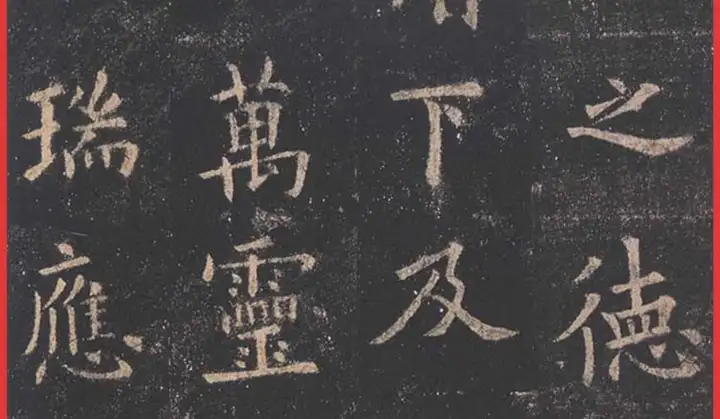 之德
下及
萬靈
瑞應